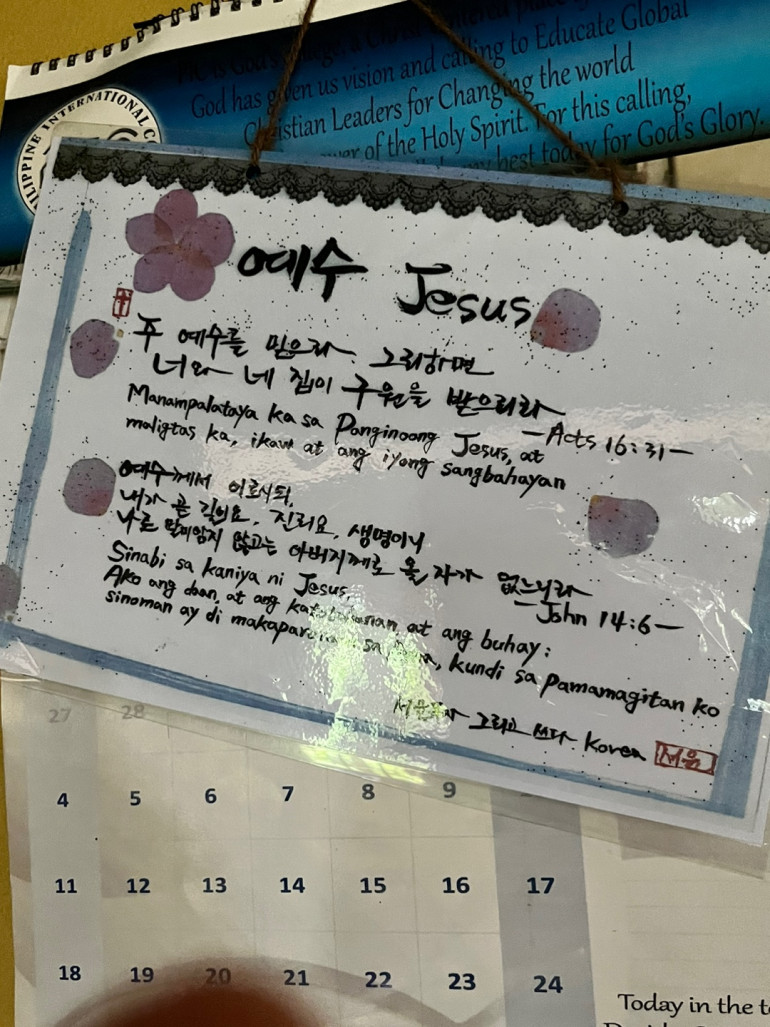 God has given us vision and calling to Educate Global
Christian Leaders for Changing the world
of the Holy Spirit. For this calling,
best today for God's Glory.
PHILIPPINE INTERNATIONAL
예수 Jesus
주 예수를 믿으라 그리하면
너와 네 집이 구원을 받으리라
-Acts 16:31-
Manampalataya ka sa Panginoong Jesus, at
maligtas ka, ikaw at ang iyong sangbahayan
예수께서 이르시되,
내가 곧 길이요, 진리요, 생명이니
나로 말미암지 않고는 아버지께로 올 자가 없느니라
-John 14:6-
Sinabi sa kaniya ni Jesus,
Ako ang daan, at ang katotohanan at ang buhay:
sinoman ay di sa, kundi sa pamamagitan ko
그리고 쓰다 Korea
서음
27 28
4 5 6 7 8 9
11 12 13 14 15 16 17
18 19 20 21 22 23 24
Today in the